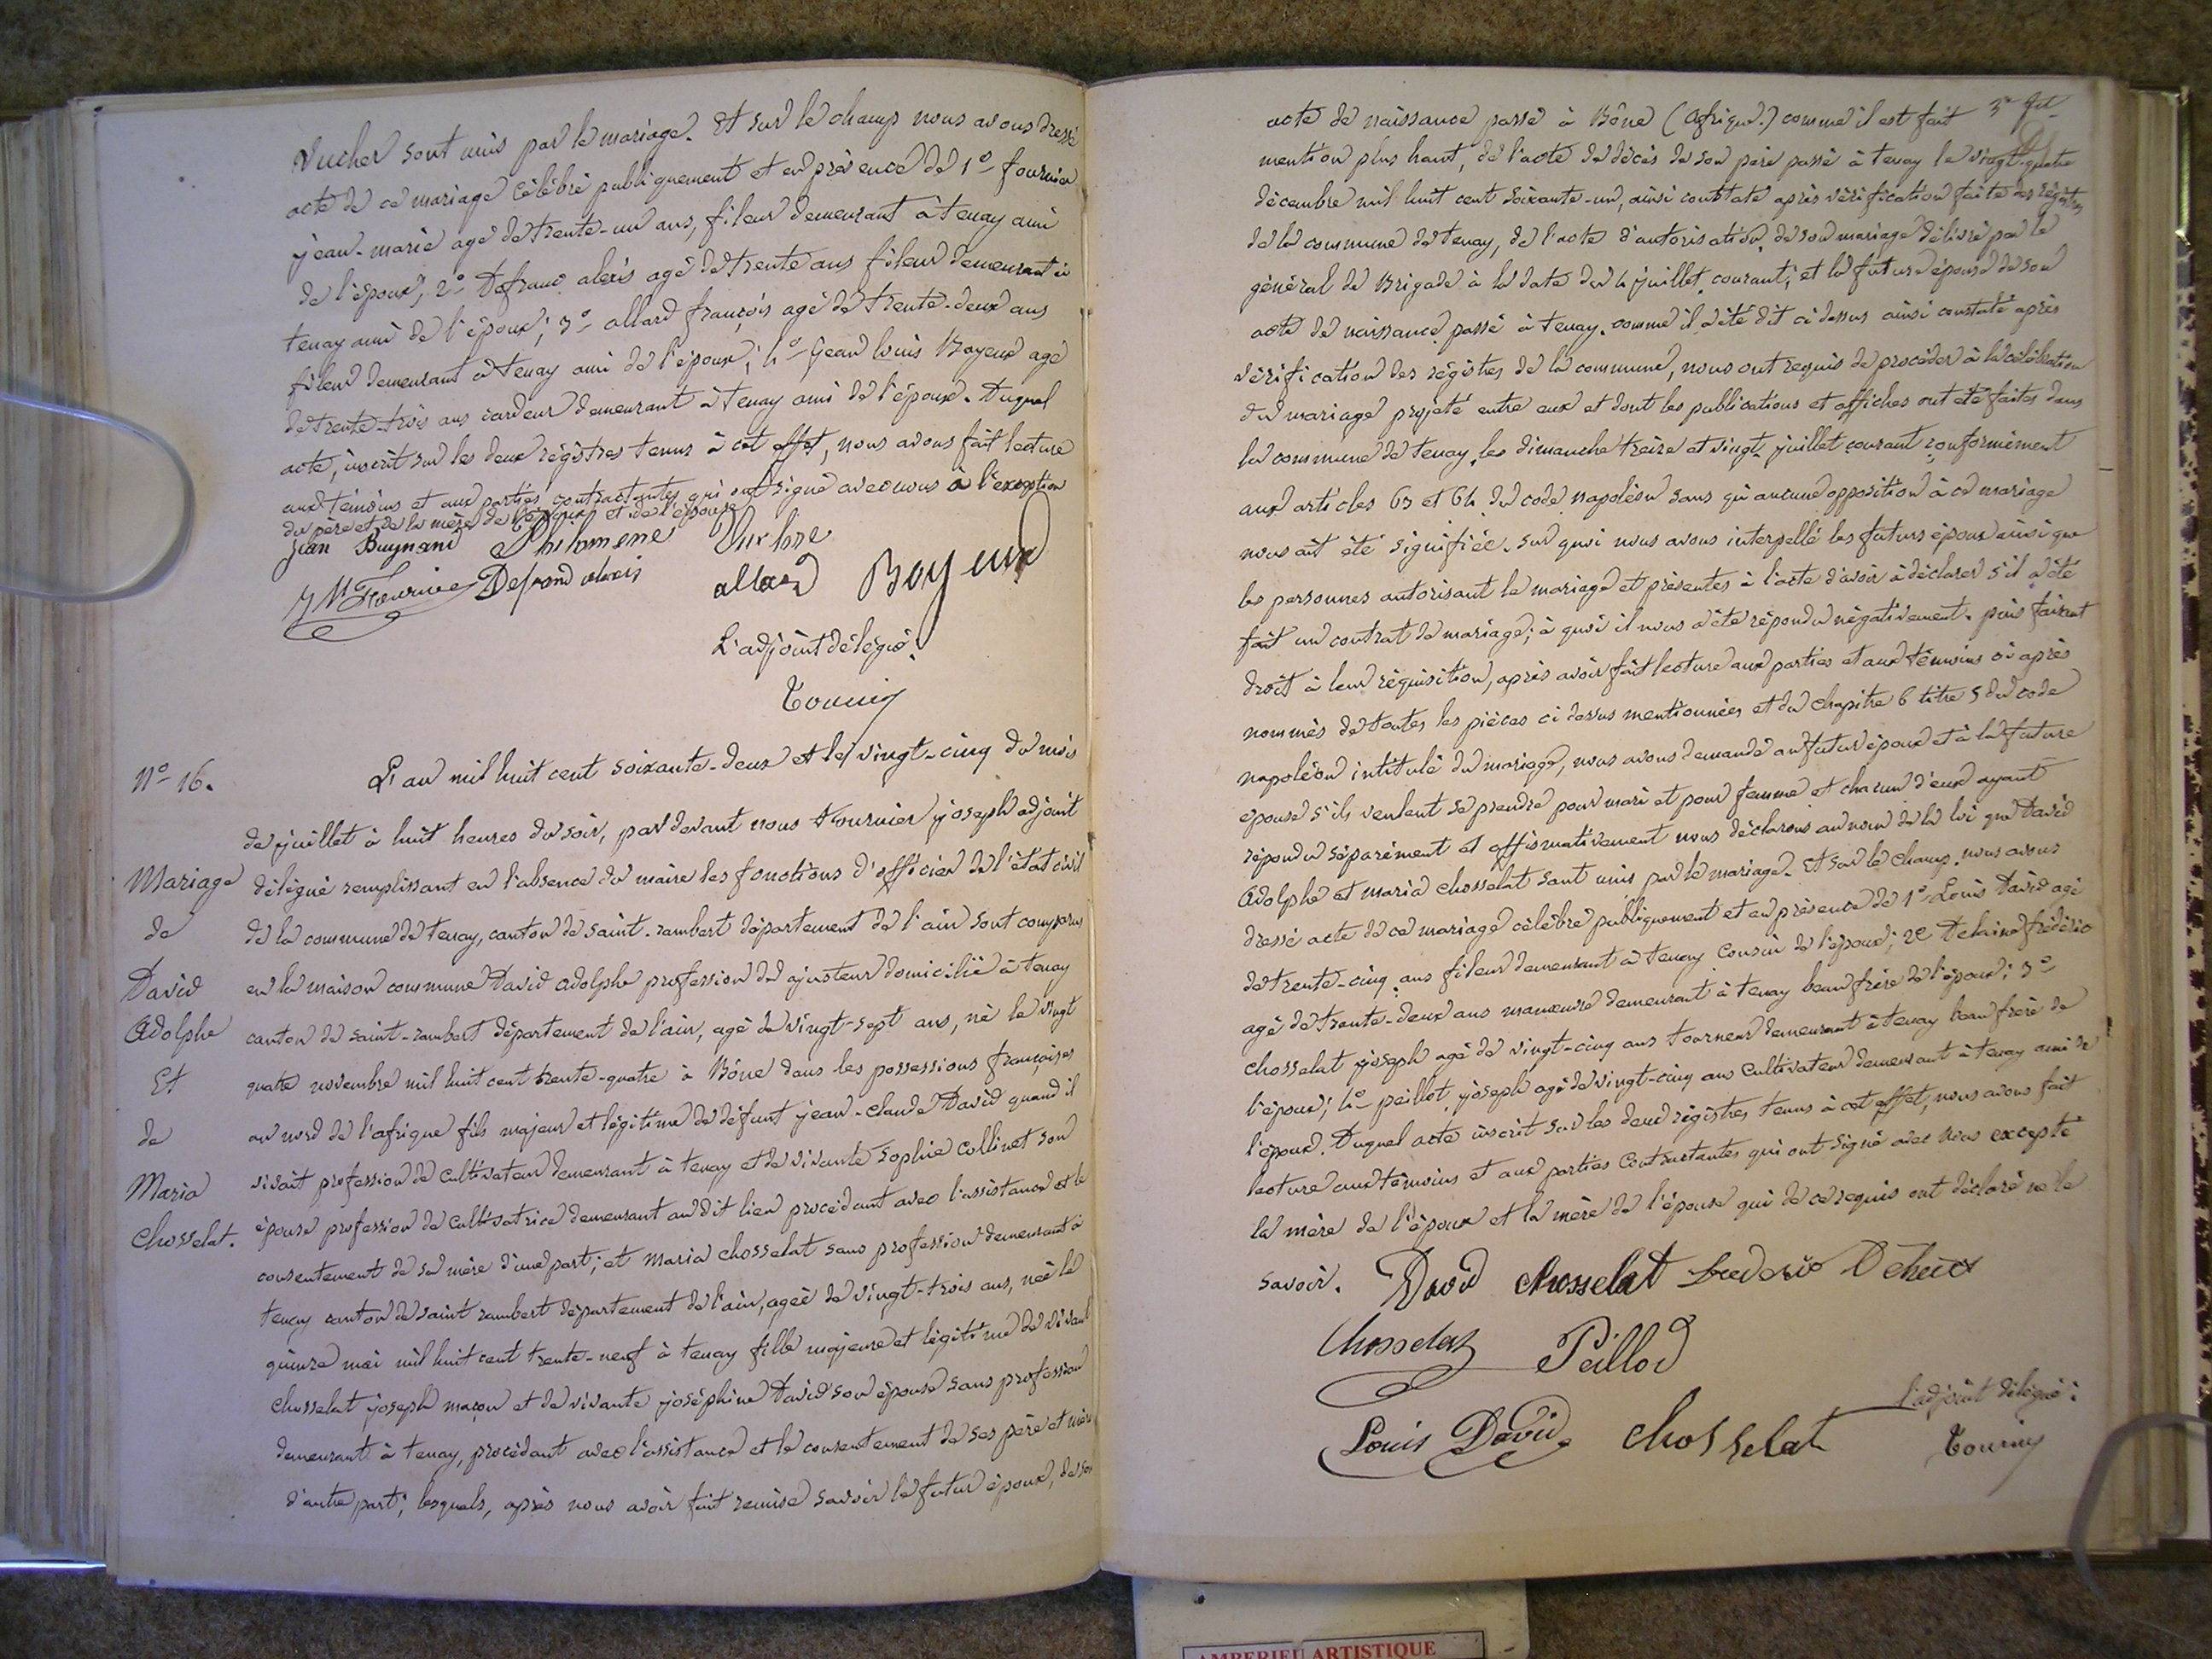 Vucher sont unis par le mariage. Et sur le champ nous avons dressé
acte de ce mariage célébré publiquement et en présence de 1º fournier
jean-marie agé de trente-un ans, fileur demeurant à tenay ami
de l'époux, 2º Defranc alexis agé de trente ans fileur demeurant à
tenay ami de l'époux; 3º allard françois agé de trente-deux ans
fileur demeurant à tenay ami de l'époux; 4º Jean louis Boyeux agé
de trente-trois ans cardeur demeurant à tenay ami de l'époux. Duquel
acte, inscrit sur les deux régistres tenus à cet effet, nous avons fait lecture
aux témoins et aux parties contractantes qui ont signé avec nous à l'exception
du père et de la mère de l'époux et de l'épouse
Jean Buynand Philomene Vucher
JM Fournier Defranc alexis allard Boyeux
L'adjoint délégué.
Nº 16.
L'an mil huit cent soixante-deux et le vingt-cinq du mois
de juillet à huit heures du soir, par devant nous Fournier joseph adjoint
Mariage
délégué remplissant en l'absence du maire les fonctions d'officier de l'état civil
de
de la commune de tenay, canton de saint-rambert département de l'ain sont comparus
David
en la maison commune David adolphe profession de ajusteur domicilié à tenay
Adolphe
canton de saint-rambert département de l'ain, agé de vingt-sept ans, né le vingt
Et
quatre novembre mil huit cent trente-quatre à Bône dans les possessions françaises
de
au nord de l'afrique fils majeur et légitime de défunt jean-claude David quand il
Maria
vivait profession de cultivateur demeurant à tenay et de vivante Sophie collinet son
Chosselat.
épouse profession de cultivatrice demeurant au dit lieu procédant avec l'assistance et le
consentement de sa mère d'une part; et maria chosselat sans profession demeurant à
tenay canton de saint rambert département de l'ain, agée de vingt-trois ans, née le
quinze mai mil huit cent trente-neuf à tenay fille majeure et légitime de vivant
chosselat joseph maçon et de vivante joséphine David son épouse sans profession
demeurant à tenay, procédant avec l'assistance et le consentement de ses père et mère
d'autre part; lesquels, après nous avoir fait remise savoir le futur époux, de son
acte de naissance passé à Bône (afrique.) comme il est fait
mention plus haut, de l'acte de décès de son père passé à tenay le vingt-quatre
décembre mil huit cent soixante-un, ainsi constaté après vérification faite des régistres
de la commune de tenay, de l'acte d'autorisation de son mariage délivré par le
général de Brigade à la date du 4 juillet courant; et la future épouse de son
acte de naissance passé à tenay comme il a été dit ci dessus ainsi constaté après
vérification des régistres de la commune, nous ont requis de procéder à la célébration
du mariage projeté entre eux et dont les publications et affiches ont été faites dans
la commune de tenay les dimanche treize et vingt juillet courant conformément
aux articles 63 et 64 du code napoléon sans qu'aucune opposition à ce mariage
nous ait été signifiée. sur quoi nous avons interpellé les futurs époux ainsi que
les personnes autorisant le mariage et présentes à l'acte d'avoir à déclarer s'il a été
fait un contrat de mariage; à quoi il nous a été répondu négativement. puis faisant
droit à leur réquisition, après avoir fait lecture aux parties et aux témoins ci après
nommés de toutes les pièces ci dessus mentionnées et du chapitre 6 titre 5 du code
napoléon intitulé du mariage, nous avons demandé au futur époux et à la future
épouse s'ils veulent se prendre pour mari et pour femme et chacun d'eux ayant
répondu séparément et affirmativement nous déclarons au nom de la loi que David
Adolphe et maria chosselat sont unis par le mariage. Et sur le champ nous avons
dressé acte de ce mariage célébré publiquement et en présence de 1º Louis David agé
de trente-cinq ans fileur demeurant à tenay cousin de l'époux; 2º frédéric
agé de trente-deux ans manœuvre demeurant à tenay beau frère de l'époux; 3º
chosselat joseph agé de vingt-cinq ans tourneur demeurant à tenay beau frère de
l'époux; 4º peillot joseph agé de vingt-cinq ans cultivateur demeurant à tenay ami de
l'époux. Duquel acte inscrit sur les deux régistres tenus à cet effet, nous avons fait
lecture aux témoins et aux parties contractantes qui ont signé avec nous excepté
la mère de l'époux et la mère de l'épouse qui de ce requis ont déclaré ne le
savoir. David chosselat
Chosselat Peillod
Louis David chosselat
l'adjoint délégué:
AMBERIEU ARTISTIQUE